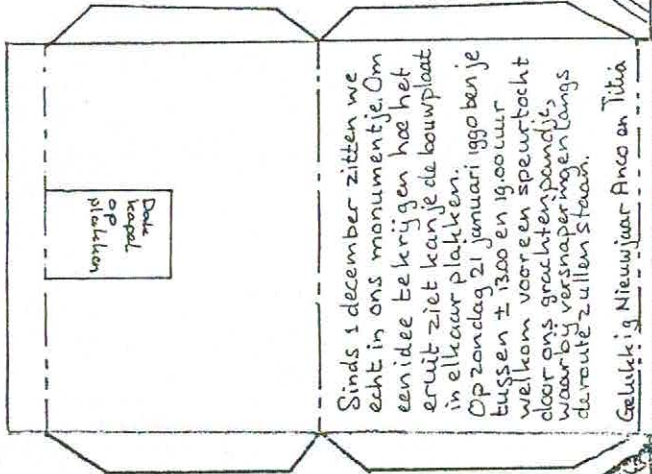 Dak
kapel
op
plakken
Sinds 1 december zitten we
echt in ons monumentje. Om
een idee te krijgen hoe het
eruit ziet kan je de bouwplaat
in elkaar plakken.
Op zondag 21 januari 1990 ben je
tussen ± 13.00 en 19.00 uur
welkom voor een speurtocht
door ons grachtenpandje,
waarby versnaperingen langs
de route zullen staan.
Gelukkig Nieuwjaar Anco en Titia